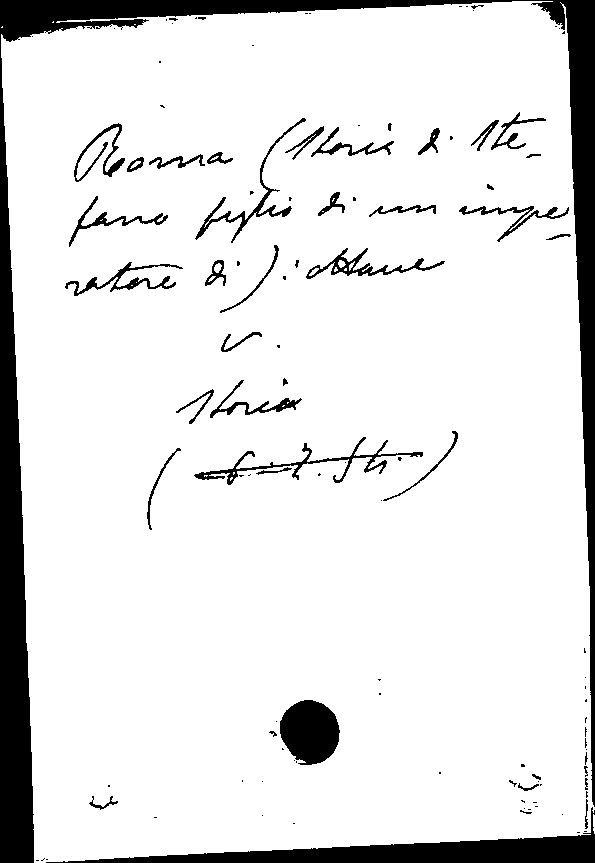 Roma (Storia di Ste-
fano figlio di un impe-
ratore di): ottave
v.
Storia